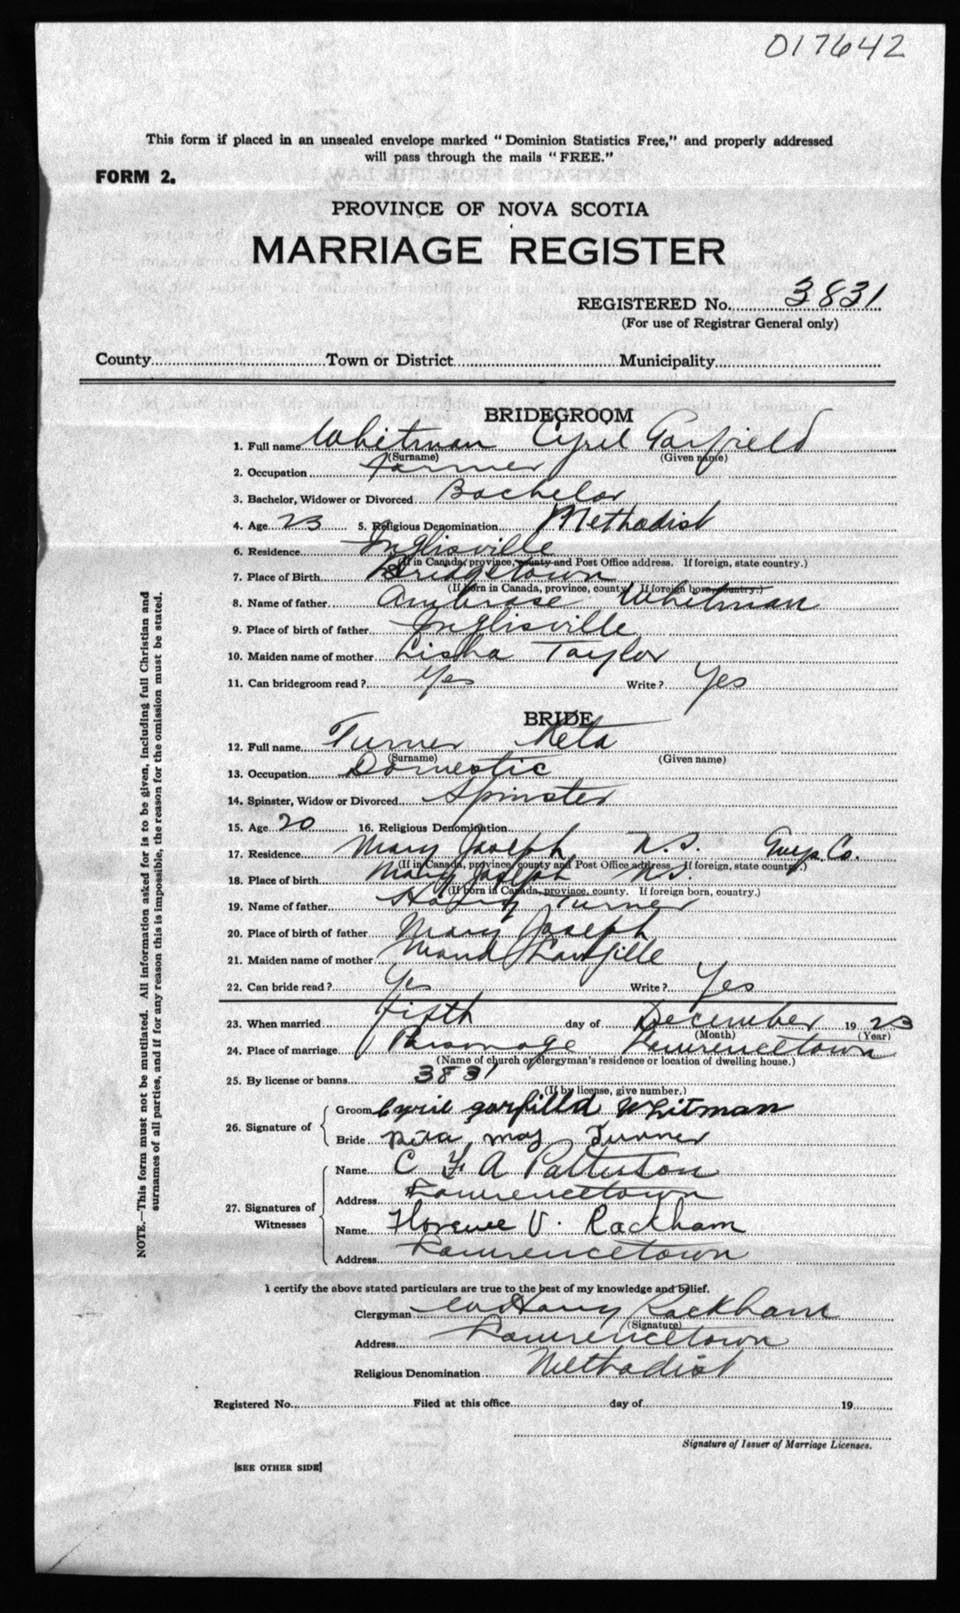 017642
This form if placed in an unsealed envelope marked "Dominion Statistics Free," and properly addressed
will pass through the mails "FREE."
FORM 2.
PROVINCE OF NOVA SCOTIA
MARRIAGE REGISTER
REGISTERED No. 3831
(For use of Registrar General only)
County Town or District Municipality
BRIDEGROOM
1. Full name Whitman Cyril Garfield
(Surname) (Given name)
2. Occupation Farmer
3. Bachelor, Widower or Divorced Bachelor
4. Age 23 5. Religious Denomination Methodist
6. Residence Inglisville
(If in Canada, province, county and Post Office address. If foreign, state country.)
7. Place of Birth Bridgetown
(If born in Canada, province, county. If foreign born, country.)
8. Name of father Ambrose Whitman
9. Place of birth of father Inglisville
10. Maiden name of mother Taylor
11. Can bridegroom read? Yes Write? Yes
BRIDE
12. Full name Turner Reta
(Surname) (Given name)
13. Occupation Domestic
14. Spinster, Widow or Divorced Spinster
15. Age 20 16. Religious Denomination
17. Residence Mary Joseph N.S. Guys. Co.
(If in Canada, province, county and Post Office address. If foreign, state country.)
18. Place of birth Mary Joseph N.S.
(If born in Canada, province, county. If foreign born, country.)
19. Name of father Turner
20. Place of birth of father Mary Joseph
21. Maiden name of mother
22. Can bride read? Yes Write? Yes
23. When married fifth day of December 1923
(Month) (Year)
24. Place of marriage Parsonage Lawrencetown
(Name of church or clergyman's residence or location of dwelling house.)
25. By license or banns 3831
(If by license, give number.)
26. Signature of
Groom Cyril garfilld Whitman
Bride Reta may Turner
27. Signatures of Witnesses
Name C F A Patterson
Address Lawrencetown
Name Florence V. Rackham
Address Lawrencetown
I certify the above stated particulars are true to the best of my knowledge and belief.
Clergyman Harry Rackham
(Signature)
Address Lawrencetown
Religious Denomination Methodist
Registered No. Filed at this office day of 19
Signature of Issuer of Marriage Licenses.
[SEE OTHER SIDE]
NOTE.—This form must not be mutilated. All information asked for is to be given, including full Christian and
surnames of all parties, and if for any reason this is impossible, the reason for the omission must be stated.